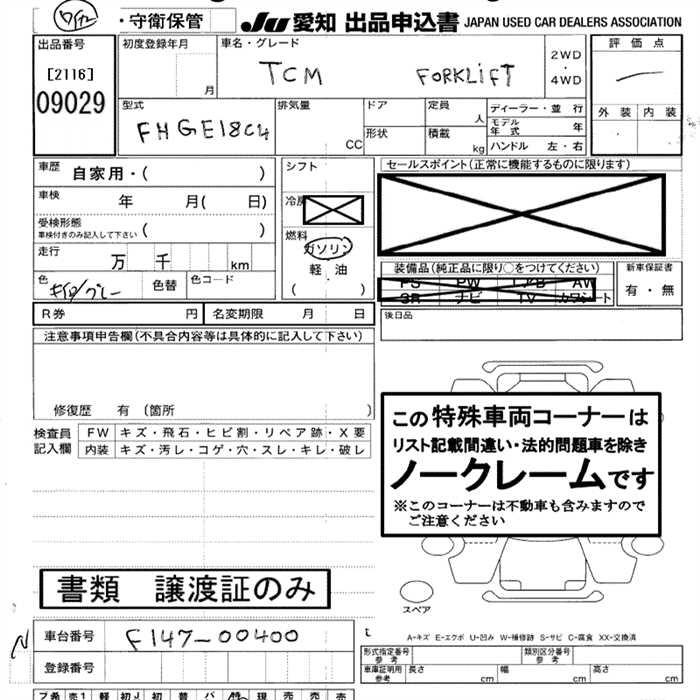 ・守衛保管 JU 愛知 出品申込書 JAPAN USED CAR DEALERS ASSOCIATION
出品番号
[2116]
09029
初度登録年月
月
車名・グレード
TCM FORKLIFT
2WD
・
4WD
評価点
外装 内装
型式
FHGE18C4
排気量
CC
ドア
形状
定員
人
積載
kg
ディーラー・並行
モデル年式 年
ハンドル 左・右
車歴
自家用・( )
車検 年 月( 日)
受検形態
車検付きのみ記入して下さい ( )
走行 万 千 km
色
色替
色コード
シフト
冷房
燃料
ガソリン
軽・油
( )
セールスポイント(正常に機能するものに限ります)
装備品(純正品に限り○をつけてください)
PS PW エアB AW
SR ナビ TV カワシート
新車保証書
有・無
R券 円
名変期限 月 日
後日品
注意事項申告欄(不具合内容等は具体的に記入して下さい)
修復歴 有 (箇所 )
検査員記入欄
FW キズ・飛石・ヒビ割・リペア跡・X要
内装 キズ・汚レ・コゲ・穴・スレ・キレ・破レ
この特殊車両コーナーは
リスト記載間違い・法的問題車を除き
ノークレームです
※このコーナーは不動車も含みますので
ご注意ください
書類 譲渡証のみ
スペア
車台番号 F147-00400
登録番号
A-キズ E-エクボ U-凹み W-補修跡 S-サビ C-腐食 XX-交換済
形式指定番号
参考
類別区分番号
参考
車庫証明用
参考
長さ cm 幅 cm 高さ cm